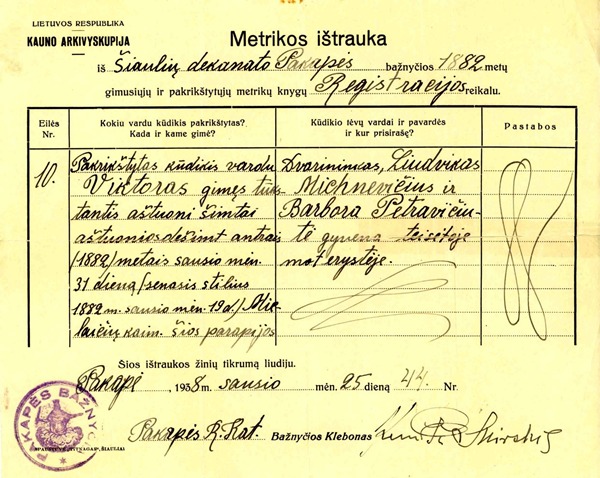 LIETUVOS RESPUBLIKA
KAUNO ARKIVYSKUPIJA
Metrikos ištrauka
iš Šiaulių dekanato Pakapės bažnyčios 1882 metų
gimusiųjų ir pakrikštytųjų metrikų knygų Registracijos reikalu.
Eilės Nr.
Kokiu vardu kūdikis pakrikštytas?
Kada ir kame gimė?
Kūdikio tėvų vardai ir pavardės
ir kur prisirašę?
Pastabos
10.
Pakrikštytas kūdikis vardu
Viktoras gimęs tūks-
tantis aštuoni šimtai
aštuoniosdešimt antrais
/1882/ metais sausio mėn.
31 dieną /senasis stilius
1882 m. sausio mėn. 19 d./ Mie-
laičių kaim. šios parapijos
Dvarininkas, Liudvikas
Michnevičius ir
Barbora Petravičiu-
tė gyvena teisėtoje
moterystėje.
Šios ištraukos žinių tikrumą liudiju.
Pakapė, 1938 m. sausio mėn. 25 dieną 44. Nr.
PAKAPĖS BAŽNYČ
Pakapės R. Kat. Bažnyčios Klebonas Kun.
SPAUSTUVĖ „TITNAGAS", ŠIAULIAI